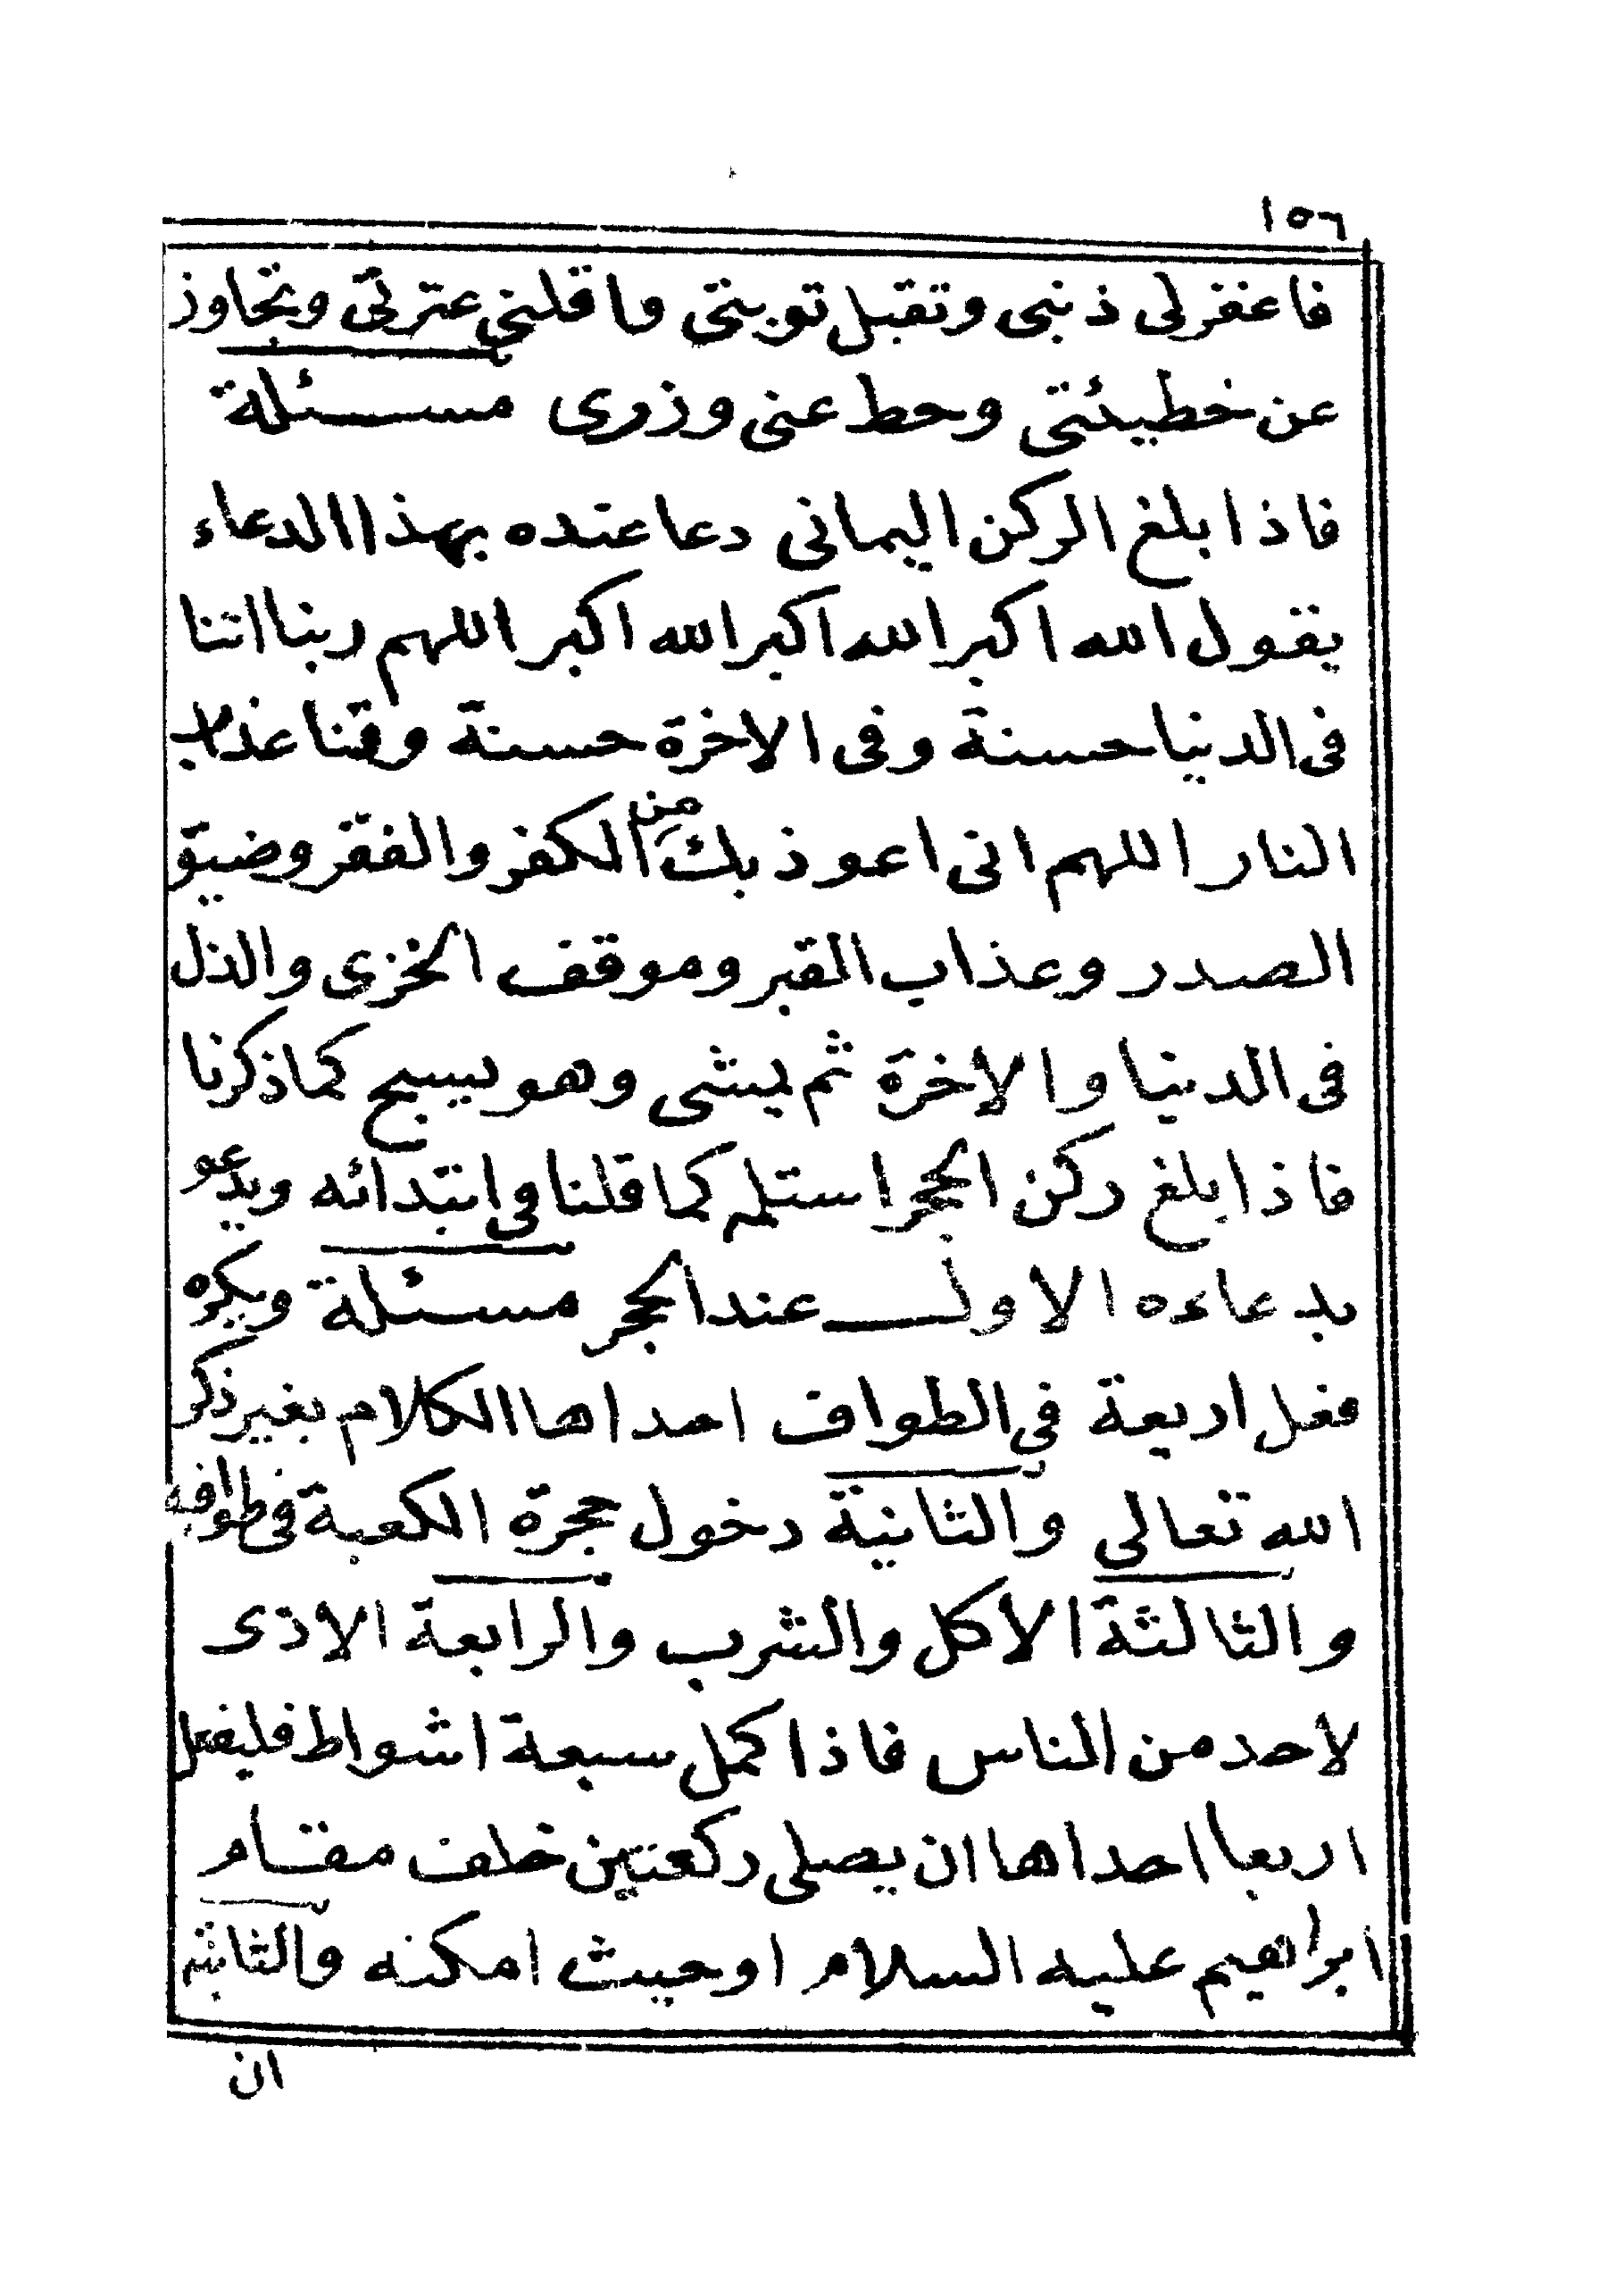 ١٥٦
فاغفر لى ذنبى وتقبل توبتى واقلنى عثرتى وتجاوز
عن خطيئتى وحط عنى وزرى مسئلة
فاذا بلغ الركن اليمانى دعا عنده بهذا الدعاء
يقول الله اكبر الله اكبر الله اكبر اللهم ربنا اتنا
فى الدنيا حسنة وفى الاخرة حسنة وقنا عذاب
النار اللهم انى اعوذ بك من الكفر والفقر وضيق
الصدر وعذاب القبر وموقف الخزى والذل
فى الدنيا والاخرة ثم يمشى وهو يسبح كما ذكرنا
فاذا بلغ ركن الحجر استلمه كما قلنا فى ابتدائه ويدعو
بدعاءه الاول عند الحجر مسئلة ويكره
فعل اربعة فى الطواف احداها الكلام بغير ذكر
الله تعالى والثانية دخول حجرة الكعبة فى طوافه
والثالثة الأكل والشرب والرابعة الاذى
لاحد من الناس فاذا كمل سبعة اشواط فليفعل
اربعا احداها ان يصلى ركعتين خلف مقام
ابراهيم عليه السلام او حيث امكنه والثانية
ان